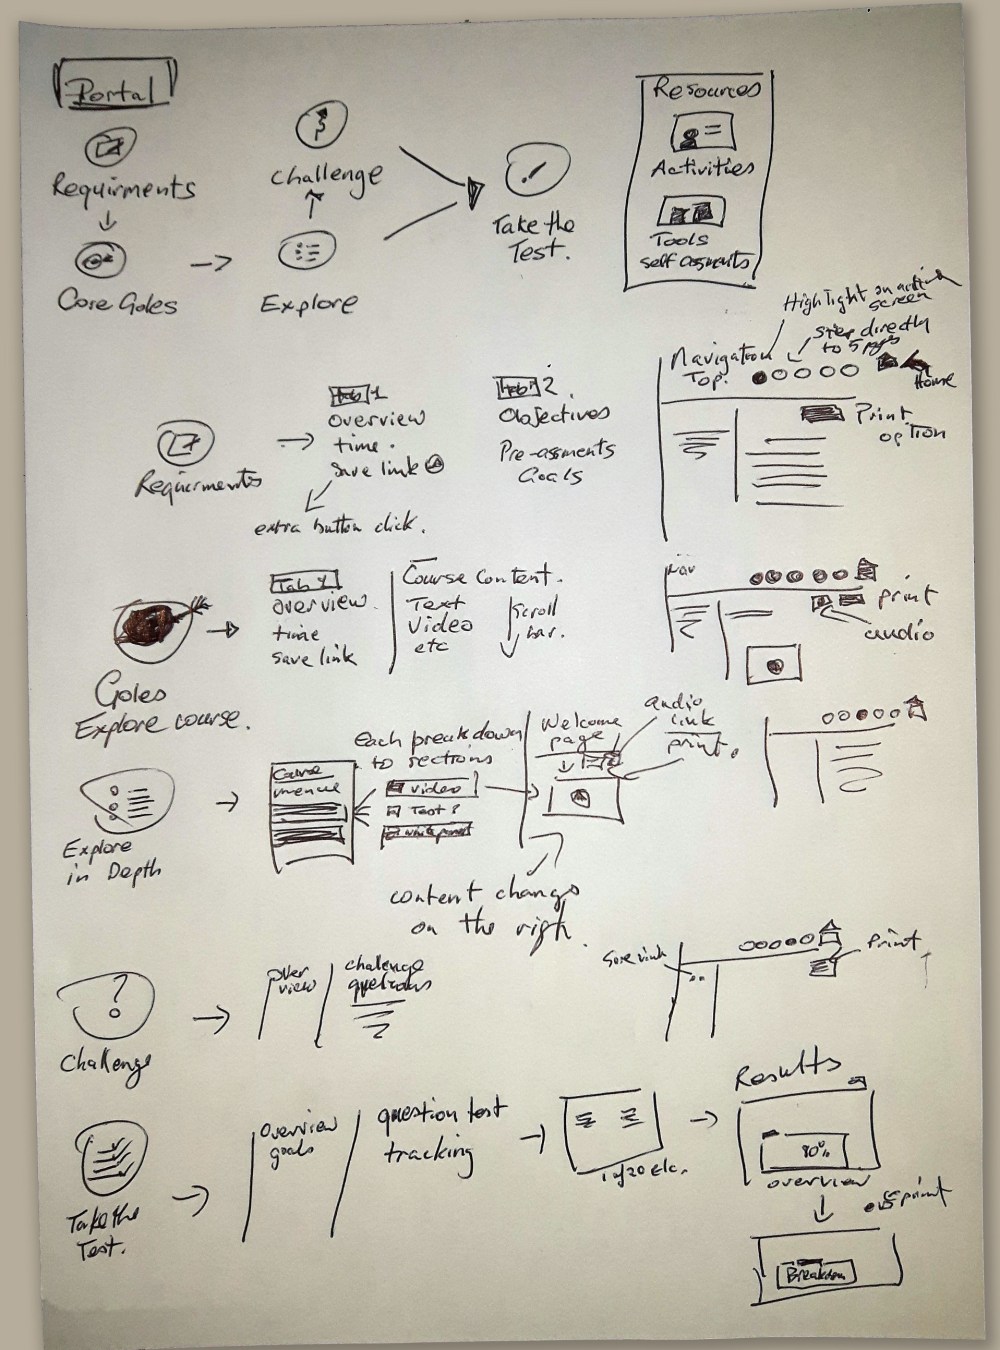 Portal
Requirments
Core Goles
Challenge
Explore
Take the
Test.
Resources
Activities
Tools
Highlight on
screen
step directly
to 5
Navigation
Top.
Home
Print
option
Requirments
Tab 1
overview
time.
save link
extra button click.
Tab 2
Objectives
Goals
Goles
Explore course.
Tab 1
overview.
time
save link
Course Content.
Text
Video
etc
Scroll
bar.
Nav
print
audio
Explore
in Depth
Course
menue
each breakdown
to sections
video
Text?
Welcome
page
audio
link
print.
content change
on the righ.
Challenge
over
view
challenge
questions
Print
Take the
Test.
overview
goals
question test
tracking
1 of 20 etc.
Results
80%
overview
print
Breakdown